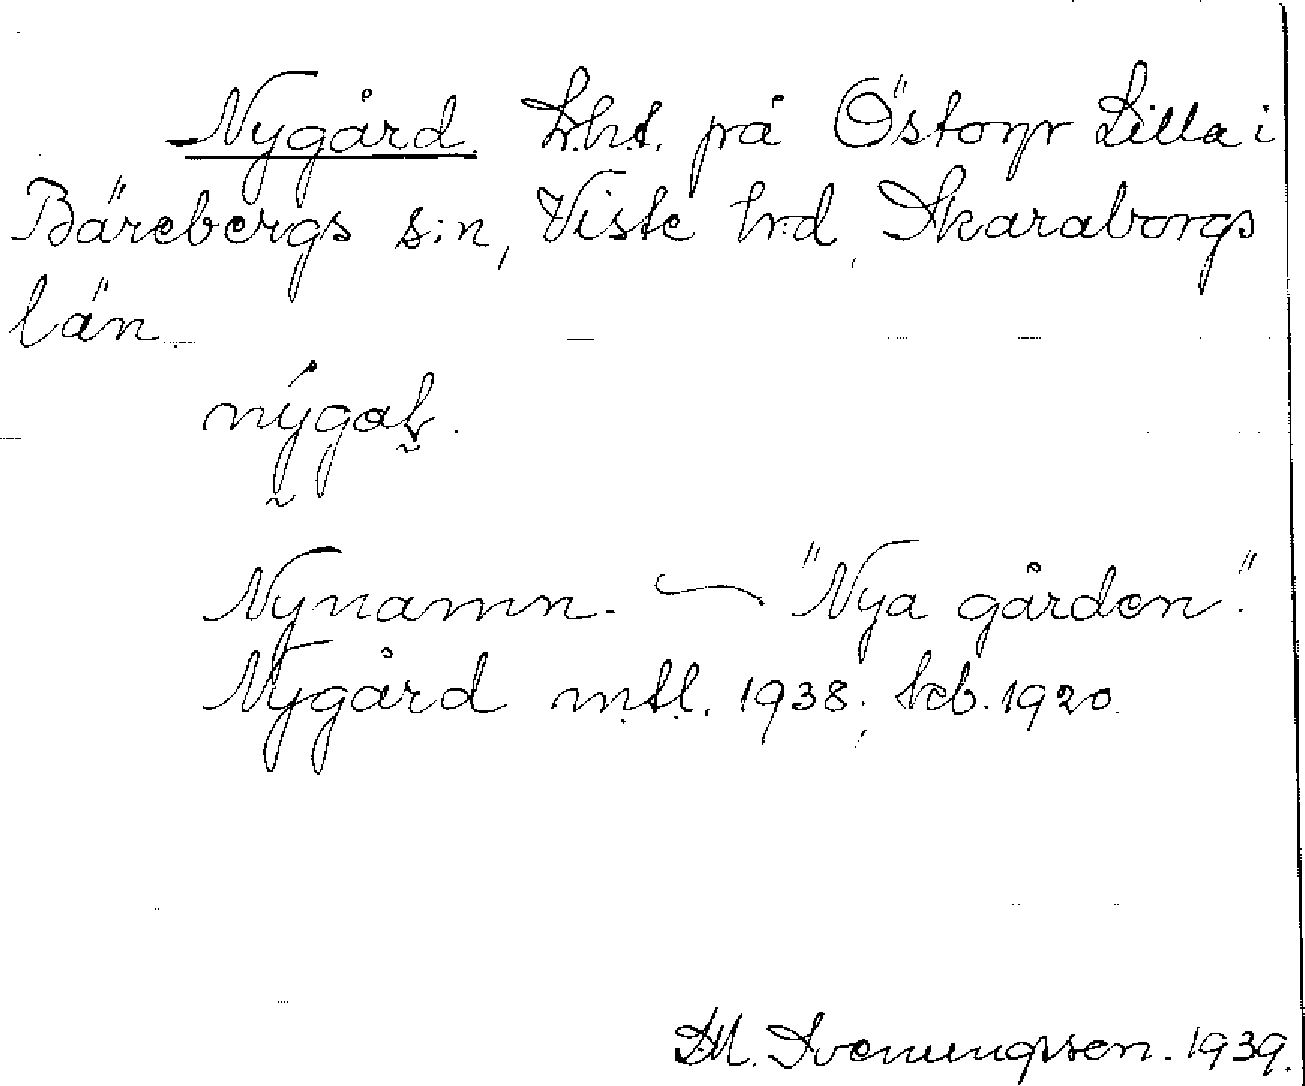 Nygård. Lht. på Östorp Lilla i
Bärebergs s:n, Viste h:d, Skaraborgs
län.
nýgaḷ.
Nynamn. "Nya gården".
Nygård mtl. 1938; kb. 1920.
M. Svenungsson. 1939.